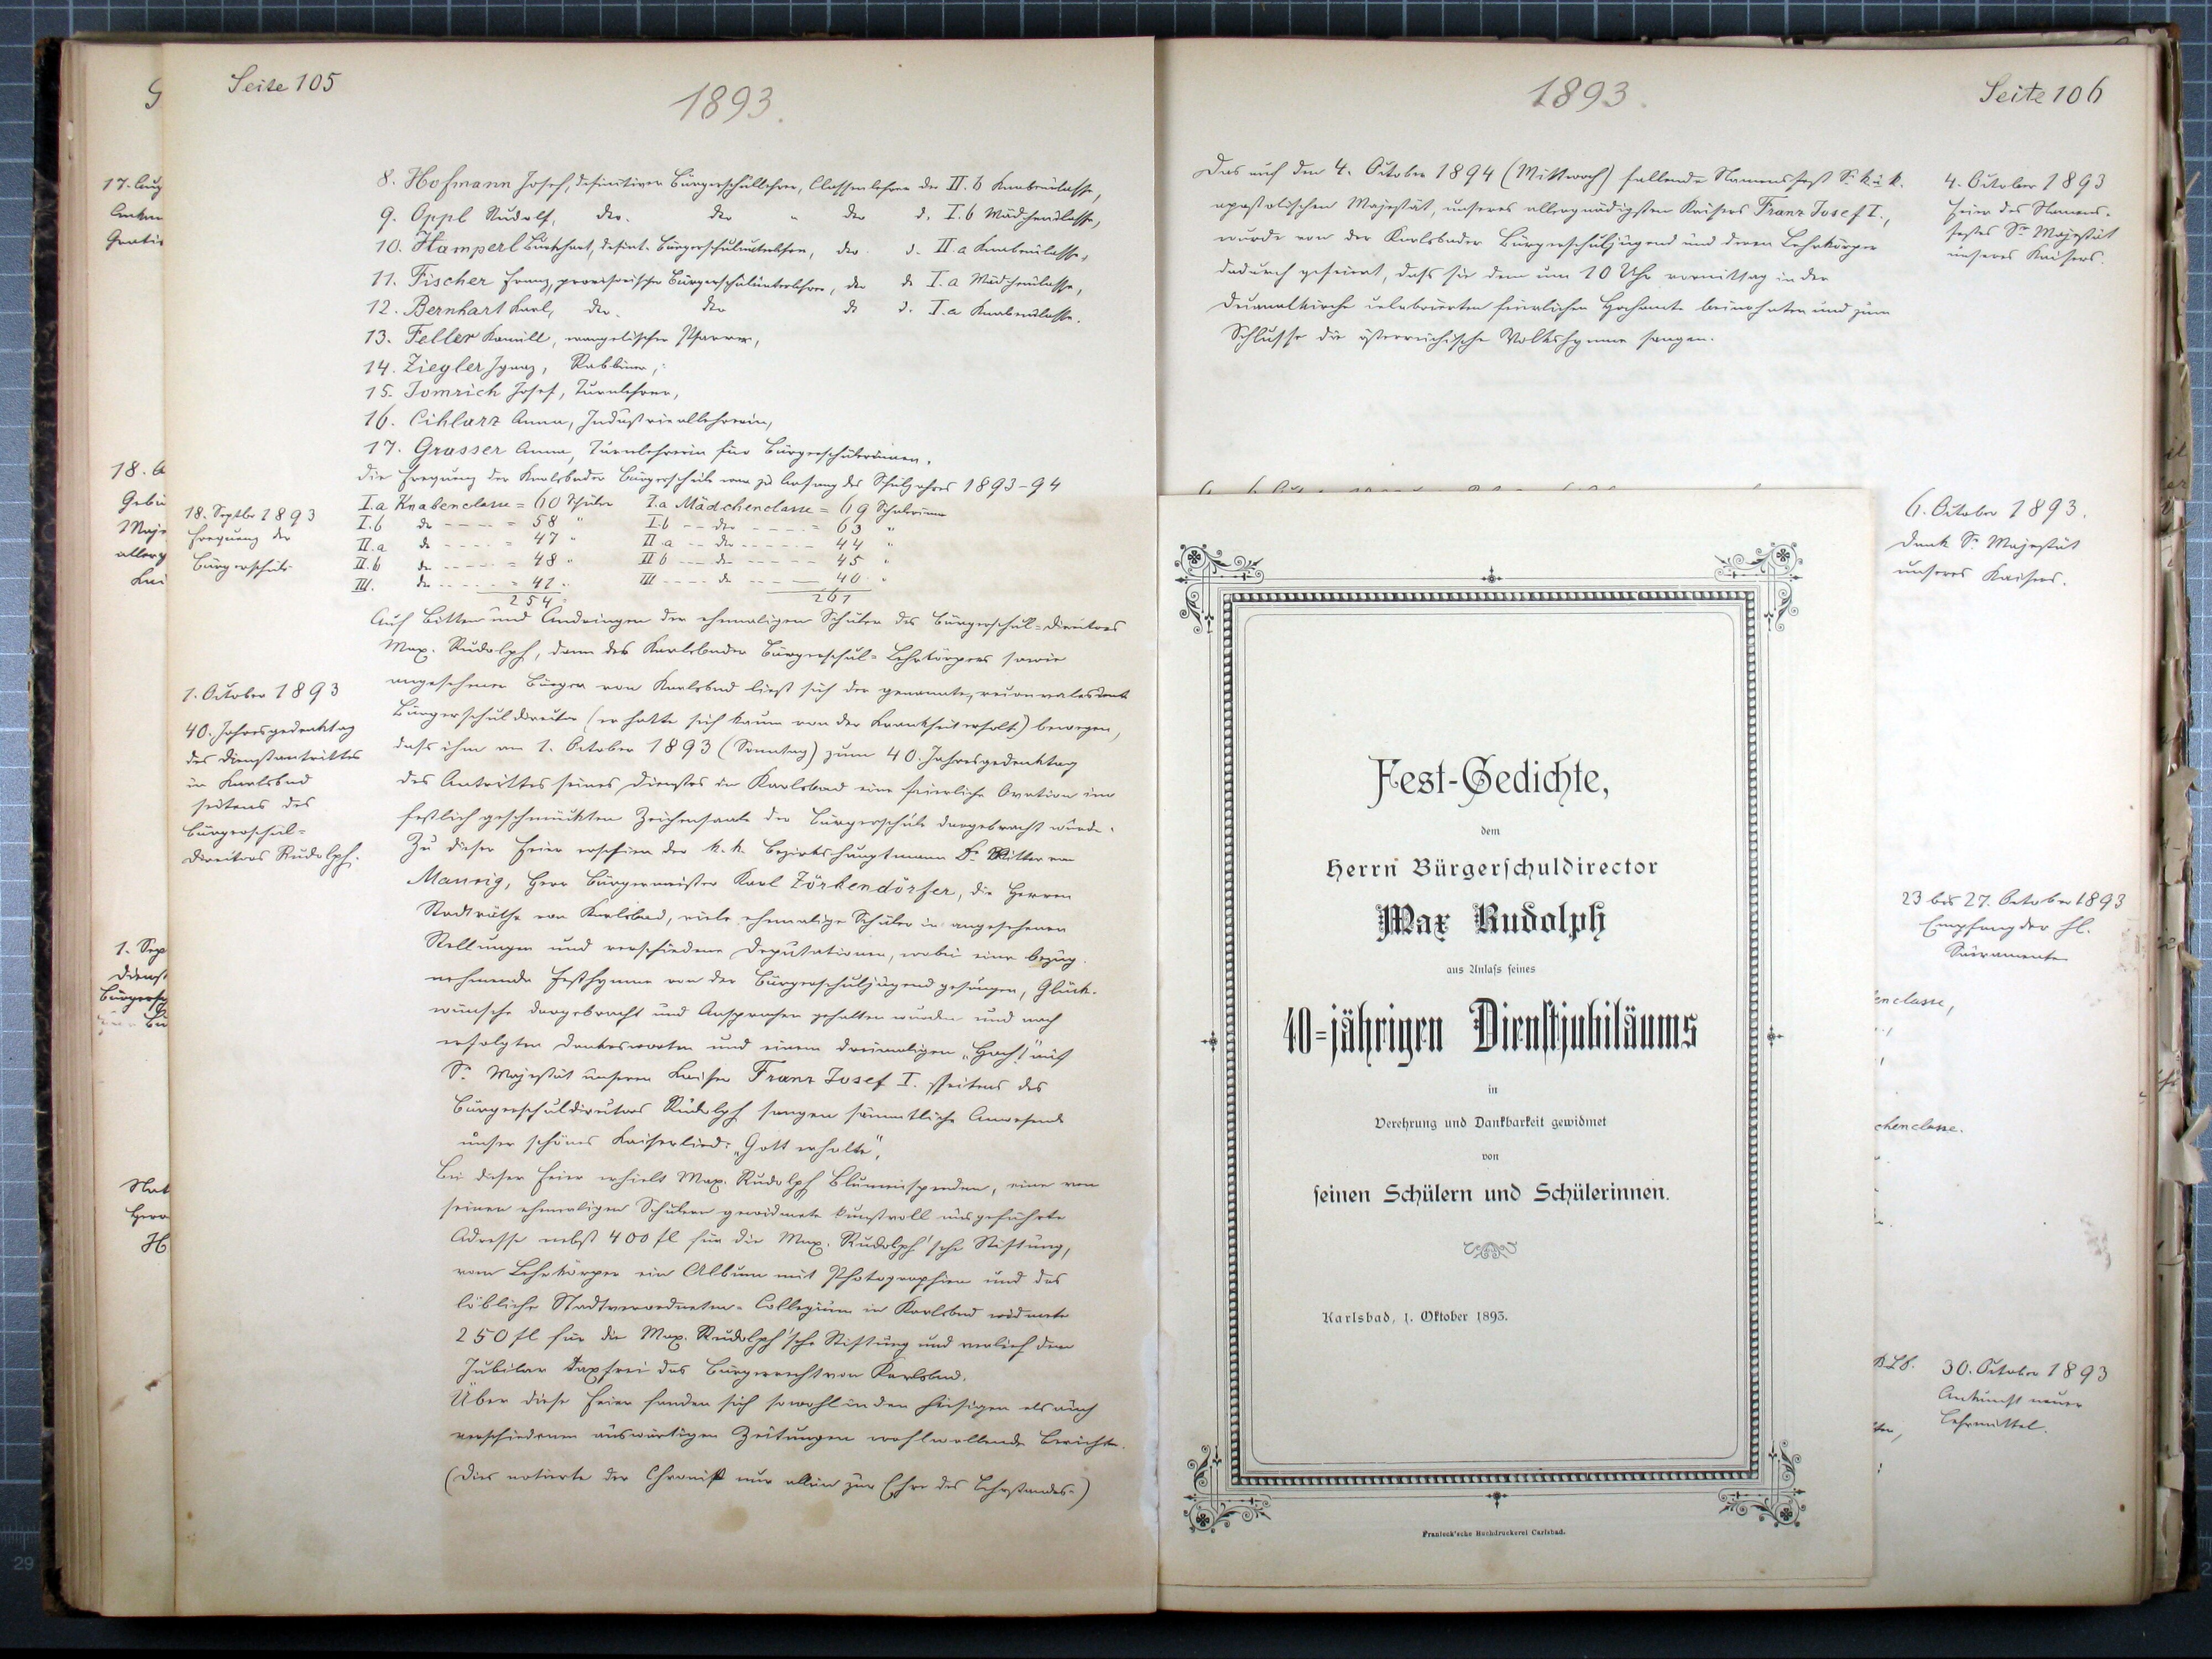 Seite 105
1893.
8. Hofmann Josef, definitiver Bürgerschullehrer, Classenlehrer der II. b Knabenclasse,
9. Oppl Rudolf, dto. dto " dto d. I. b Mädchenclasse,
10. Hamperl Burkhart, definit. Bürgerschulunterlehrer, dto. d. II a Knabenclasse,
11. Fischer Franz, provisorischer Bürgerschulunterlehrer, dto d. I. a Mädchenclasse,
12. Bernhart Karl, dto. dto dto d. I. a Knabenclasse.
13. Feller Kamill, evangelischer Pfarrer,
14. Ziegler Ignaz, Rabbiner,
15. Tomrich Josef, Turnlehrer,
16. Cihlarz Anna, Industriallehrerin,
17. Grasser Anna, Turnlehrerin für Bürgerschülerinnen.
Die Frequenz der Karlsbader Bürgerschule war zu Anfang des Schuljahres 1893-94
I. a Knabenclasse = 60 Schüler I. a Mädchenclasse = 69 Schülerinnen
I. b dto - - - - = 58 " I. b - - dto - - - - - = 63 "
II. a dto - - - - = 47 " II a - - dto - - - - - 44 "
II. b dto - - - - = 48 " II b - - - dto - - - - - 45 "
III. dto - - - - = 41 " III - - - - dto - - - - 40 "
254. 261
18. Septbr 1893
Frequenz der
Bürgerschule
Auf Bitten und Andringen der ehemaligen Schüler des Bürgerschul=Directors
Max. Rudolph, dann des Karlsbader Bürgerschul=Lehrkörpers sowie
angesehener Bürger von Karlsbad ließ sich der genannte, reconvalescente
Bürgerschuldirector (er hatte sich kaum von der Krankheit erholt) bewegen,
dass ihm am 1. October 1893 (Sonntag) zum 40. Jahresgedenktag
des Antrittes seines Dienstes in Karlsbad eine feierliche Ovation im
festlich geschmückten Zeichensaale der Bürgerschule dargebracht wurde.
Zu dieser Feier erschien der k. k. Bezirkshauptmann Dr. Ritter von
Maurig, Herr Bürgermeister Karl Zörkendörfer, die Herren
Stadträthe von Karlsbad, viele ehemalige Schüler in angesehenen
Stellungen und verschiedene Deputationen, wobei eine bezug-
nehmende Festhymne von der Bürgerschuljugend gesungen, Glück-
wünsche dargebracht und Ansprachen gehalten wurden und nach
erfolgten Dankesworten und einem dreimaligen „Hoch!" auf
Sr. Majestät unseren Kaiser Franz Josef I. seitens des
Bürgerschuldirectors Rudolph sangen sämmtliche Anwesende
unser schönes Kaiserlied: „Gott erhalte",
Bei dieser Feier erhielt Max. Rudolph Blumenspenden, eine von
seinen ehemaligen Schülern gewidmete kunstvoll ausgeführte
Adresse nebst 400 fl für die Max. Rudolph'sche Stiftung,
vom Lehrkörper ein Album mit Photographien und das
löbliche Stadtverordneten-Collegium in Karlsbad widmete
250 fl für die Max. Rudolph'sche Stiftung und verlieh dem
Jubilar taxfrei das Bürgerrecht von Karlsbad.
Über diese Feier fanden sich sowohl in den hiesigen als auch
verschiedenen auswärtigen Zeitungen wohlwollende Berichte.
(Dies notierte der Chronist nur allein zur Ehre des Lehrstandes.)
1. October 1893
40. Jahresgedenktag
des Dienstantrittes
in Karlsbad
seitens des
Bürgerschul=
directors Rudolph.
1893.
Seite 106
Das auf den 4. October 1894 (Mittwoch) fallende Namensfest Sr. k. u. k.
apostolischen Majestät, unseres allergnädigsten Kaisers Franz Josef I.,
wurde von der Karlsbader Bürgerschuljugend und deren Lehrkörper
dadurch gefeiert, dass sie dem um 10 Uhr vormittag in der
Decanalkirche celebrierten feierlichen Hochamte beiwohnten und zum
Schlusse die österreichische Volkshymne sangen.
4. October 1893
Feier des Namens-
festes Sr. Majestät
unseres Kaisers.
6. October 1893.
Dank Sr. Majestät
unseres Kaisers.
23 bis 27. October 1893
Empfang der hl.
Sacramente
enclasse,
chenclasse.
30. October 1893
Ankunft neuer
Lehrmittel.
Fest-Gedichte,
dem
Herrn Bürgerschuldirector
Max Rudolph
aus Anlass seines
40=jährigen Dienstjubiläums
in
Verehrung und Dankbarkeit gewidmet
von
seinen Schülern und Schülerinnen.
Karlsbad, 1. Oktober 1893.
Franieck'sche Buchdruckerei Carlsbad.
17. Aug
18. A
1. Sep
29